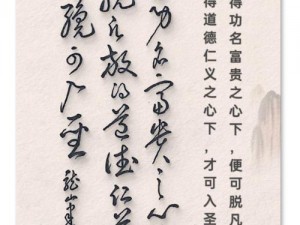 得功名富贵之心下，便可脱凡
得道德仁义之心下，才可入圣
功名富贵之心
脱凡放得道德仁义
可入圣